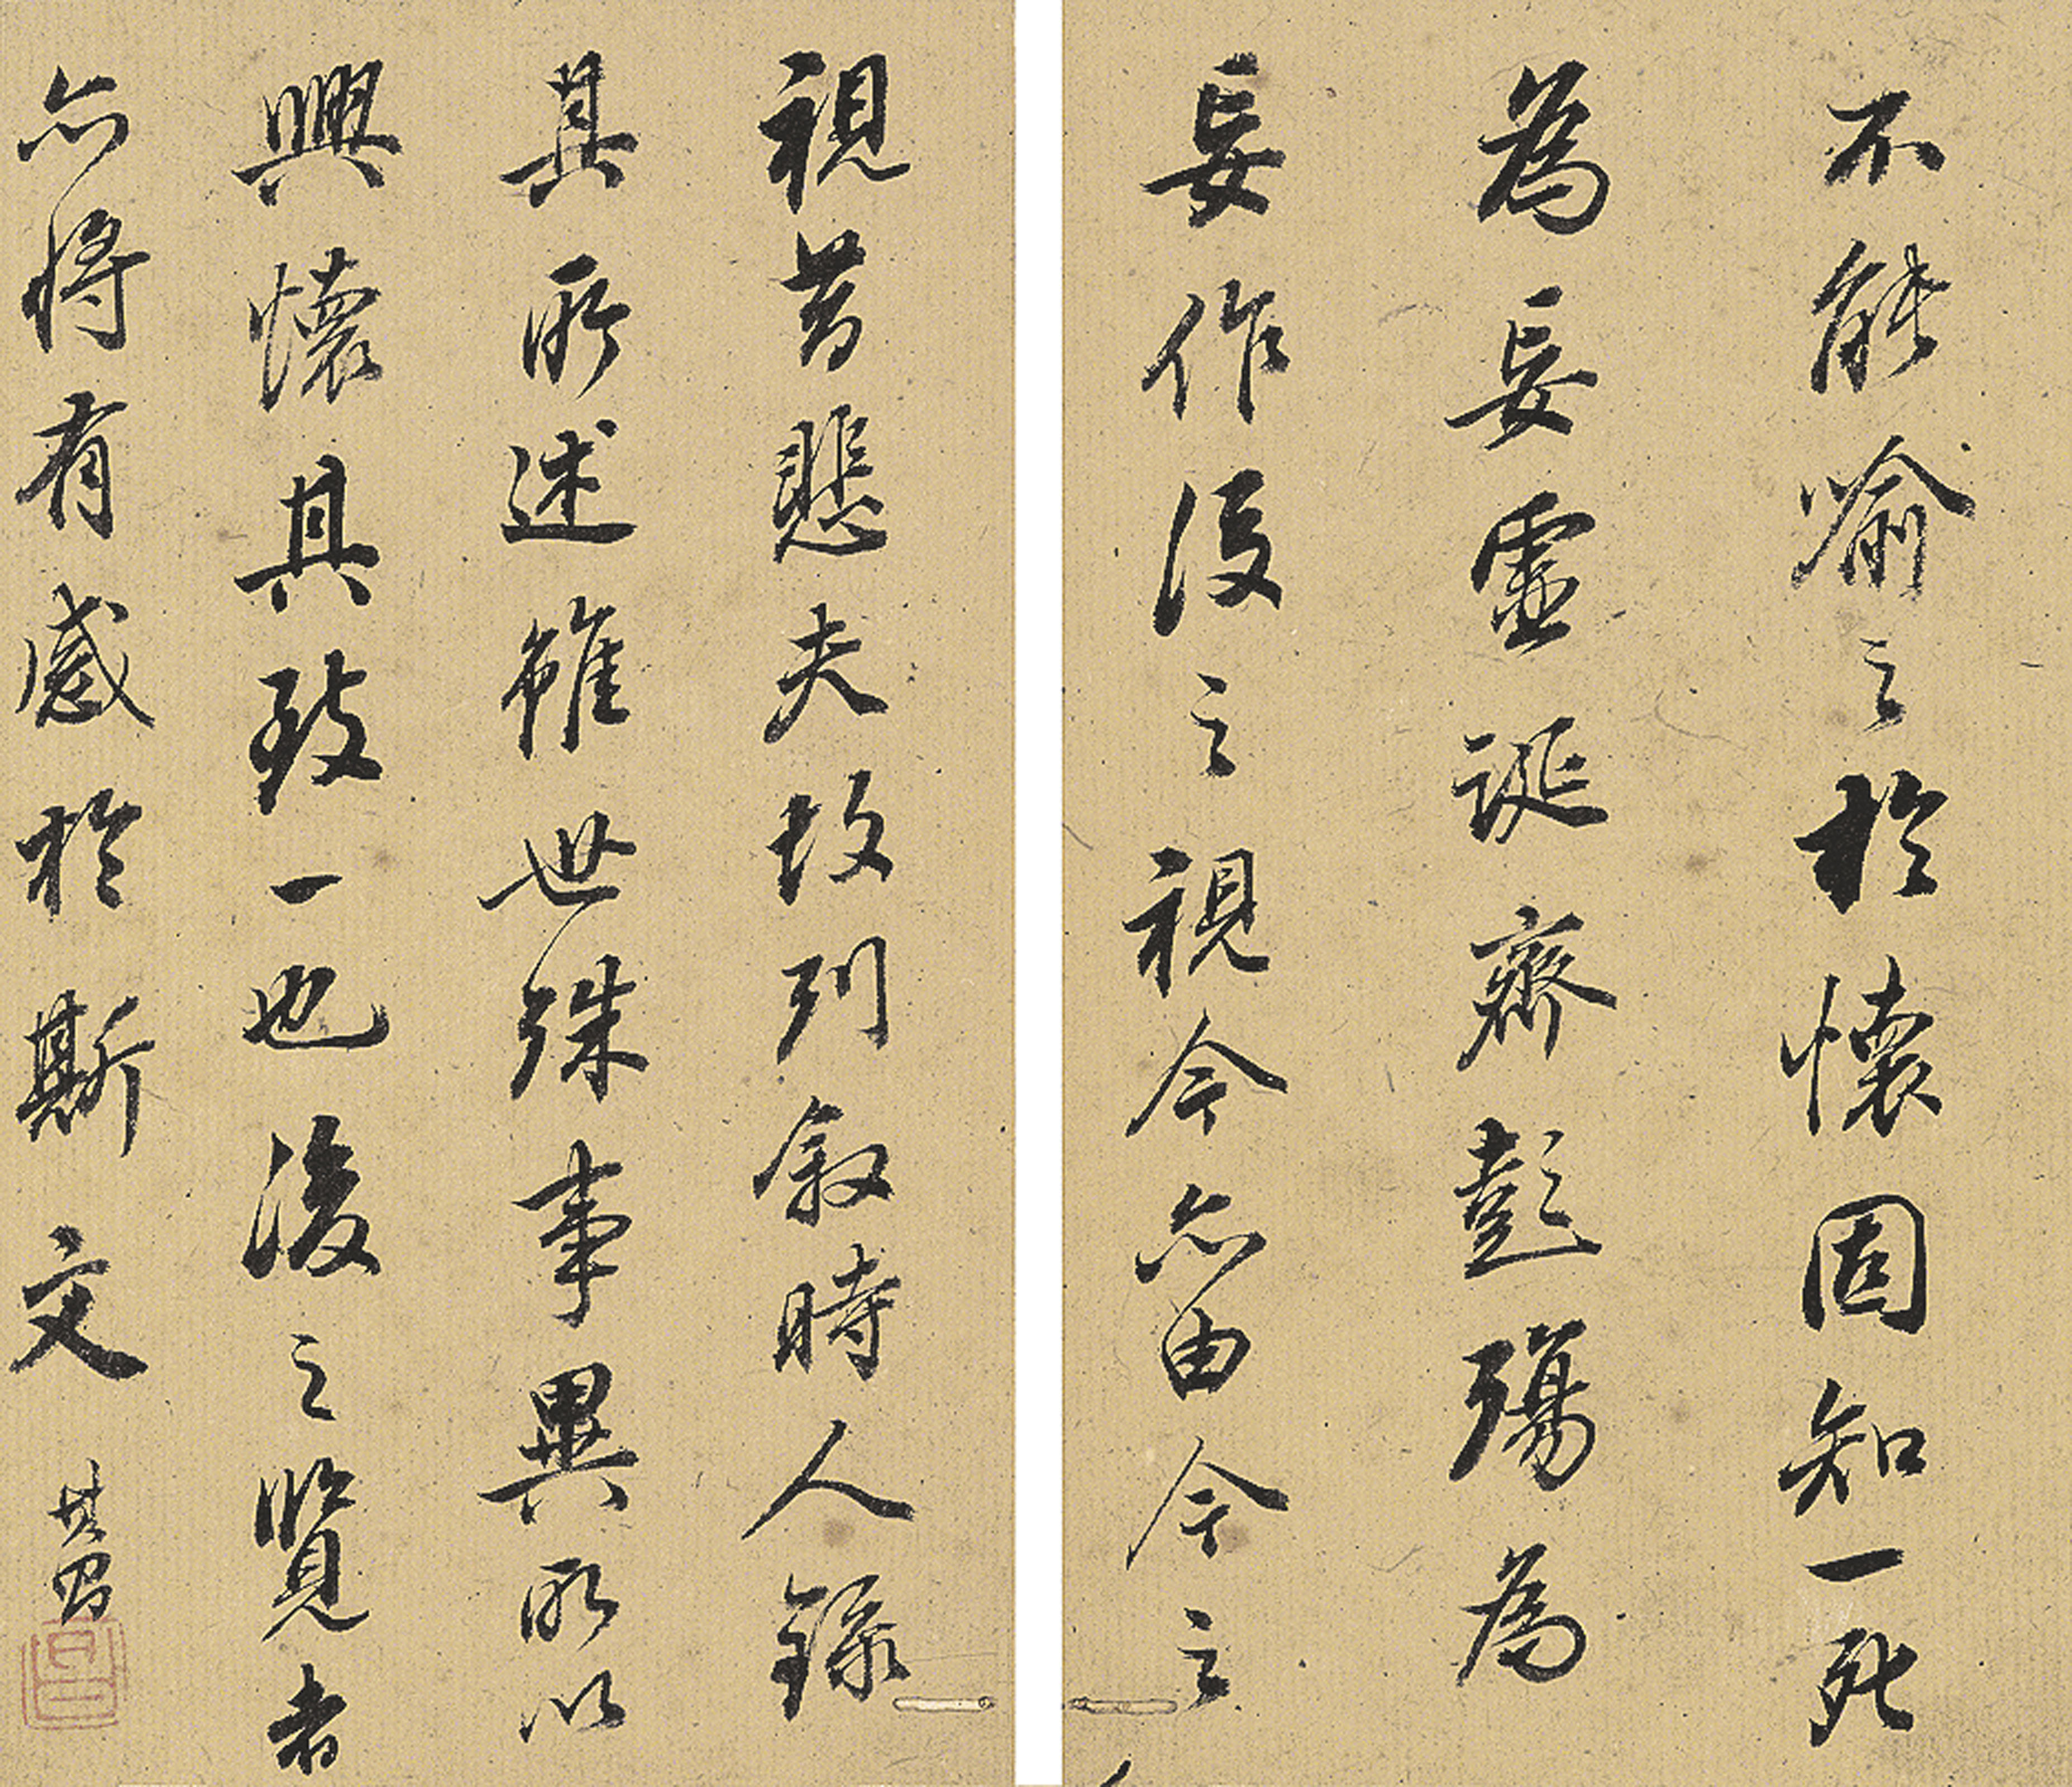 不能喻之於懷固知一死
為妄虛誕齊彭殤為
妄作後之視今亦由今之
視昔悲夫故列敘時人錄
其所述雖世殊事異所以
興懷其致一也後之覽者
亦將有感於斯文 其昌